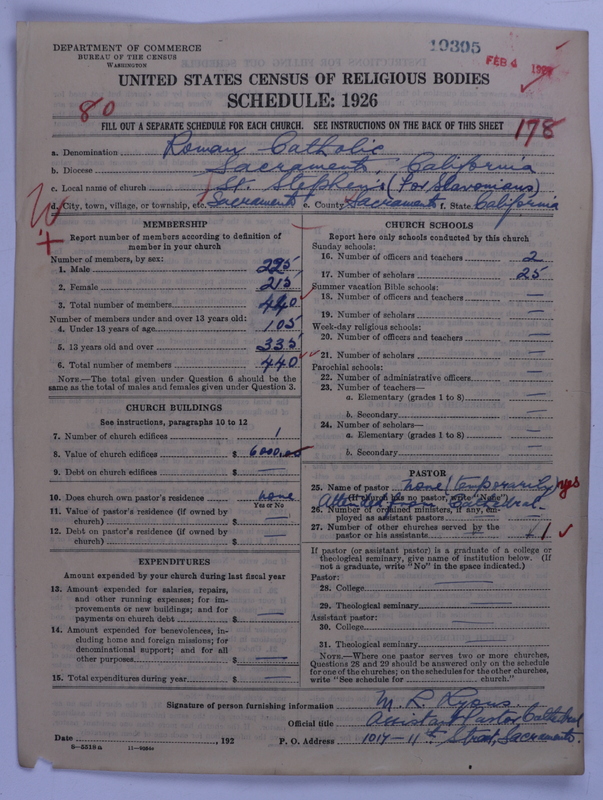 DEPARTMENT OF COMMERCE
BUREAU OF THE CENSUS
WASHINGTON
19395
FEB 4
UNITED STATES CENSUS OF RELIGIOUS BODIES
SCHEDULE: 1926
80
FILL OUT A SEPARATE SCHEDULE FOR EACH CHURCH. SEE INSTRUCTIONS ON THE BACK OF THIS SHEET
178
a. Denomination Roman Catholic
b. Diocese Sacramento California
c. Local name of church St. Stephen's (For Slavonians)
d. City, town, village, or township, etc. Sacramento e. County Sacramento f. State California
MEMBERSHIP
Report number of members according to definition of member in your church
Number of members, by sex:
1. Male 225
2. Female 215
3. Total number of members 440
Number of members under and over 13 years old:
4. Under 13 years of age 105
5. 13 years old and over 335
6. Total number of members 440
NOTE.—The total given under Question 6 should be the same as the total of males and females given under Question 3.
CHURCH BUILDINGS
See instructions, paragraphs 10 to 12
7. Number of church edifices 1
8. Value of church edifices $ 6000.00
9. Debt on church edifices $ —
10. Does church own pastor's residence none
Yes or No
11. Value of pastor's residence (if owned by church) $ —
12. Debt on pastor's residence (if owned by church) $ —
EXPENDITURES
Amount expended by your church during last fiscal year
13. Amount expended for salaries, repairs, and other running expenses; for improvements or new buildings; and for payments on church debt $ —
14. Amount expended for benevolences, including home and foreign missions; for denominational support; and for all other purposes $ —
15. Total expenditures during year $ —
CHURCH SCHOOLS
Report here only schools conducted by this church
Sunday schools:
16. Number of officers and teachers 2
17. Number of scholars 25
Summer vacation Bible schools:
18. Number of officers and teachers —
19. Number of scholars —
Week-day religious schools:
20. Number of officers and teachers —
21. Number of scholars —
Parochial schools:
22. Number of administrative officers —
23. Number of teachers—
a. Elementary (grades 1 to 8) —
b. Secondary —
24. Number of scholars—
a. Elementary (grades 1 to 8) —
b. Secondary —
PASTOR
25. Name of pastor none (temporarily yes
(If church has no pastor, write "None")
Attended from Cathedral
26. Number of ordained ministers, if any, employed as assistant pastors
27. Number of other churches served by the pastor or his assistants 1
If pastor (or assistant pastor) is a graduate of a college or theological seminary, give name of institution below. (If not a graduate, write "No" in the space indicated.)
Pastor:
28. College —
29. Theological seminary —
Assistant pastor:
30. College —
31. Theological seminary —
NOTE.—Where one pastor serves two or more churches, Questions 28 and 29 should be answered only on the schedule for one of the churches; on the schedules for the other churches, write "See schedule for church."
Signature of person furnishing information M. L. Lyons
Official title Assistant Pastor, Cathedral
Date , 192 P. O. Address 1017—11th Street, Sacramento.